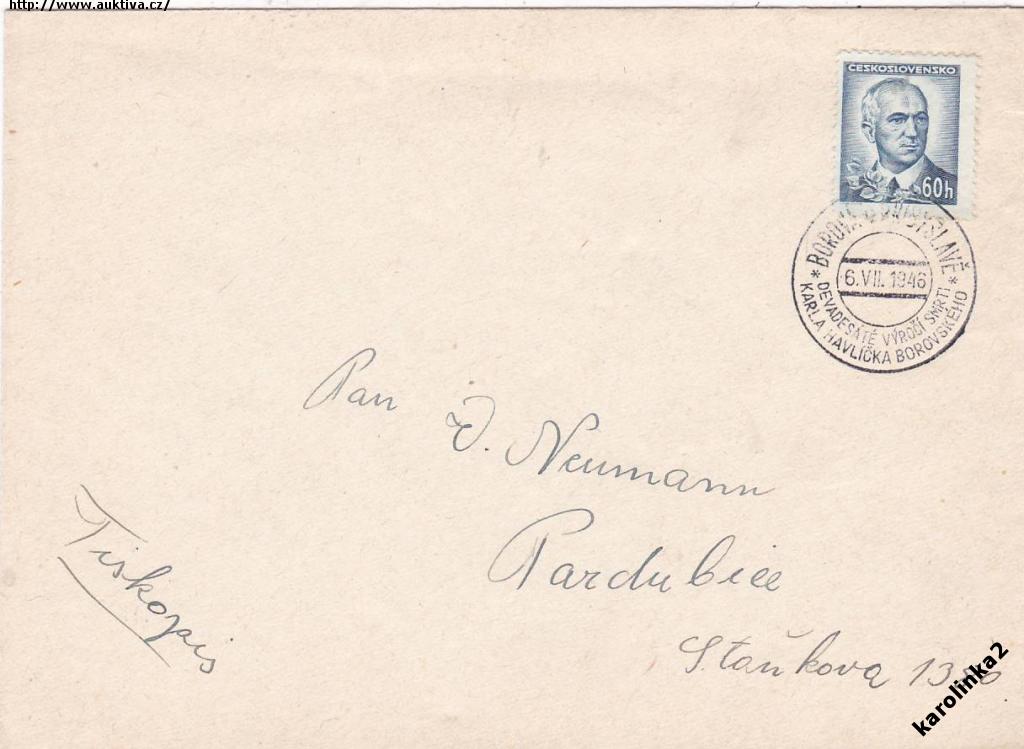 http://www.auktiva.cz/
ČESKOSLOVENSKO
60h
BOROVÁ U PŘIBYSLAVĚ
* 6.VII. 1946 *
DEVADESÁTÉ VÝROČÍ SMRTI
KARLA HAVLÍČKA BOROVSKÉHO
Pan
V. Neumann
Pardubice
Tiskopis
Staňkova
karolinka2